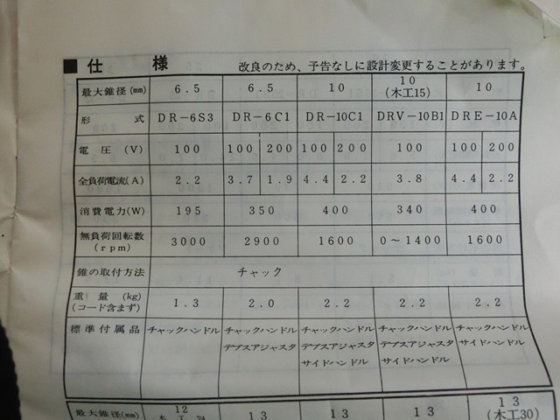 ■仕様 改良のため、予告なしに設計変更することがあります。
最大錐径(mm) 6.5 6.5 10 10 (木工15) 10
形式 DR-6S3 DR-6C1 DR-10C1 DRV-10B1 DRE-10A
電圧(V) 100 100 200 100 200 100 100 200
全負荷電流(A) 2.2 3.7 1.9 4.4 2.2 3.8 4.4 2.2
消費電力(W) 195 350 400 340 400
無負荷回転数(rpm) 3000 2900 1600 0~1400 1600
錐の取付方法 チャック
重量(kg) (コード含まず) 1.3 2.0 2.2 2.2 2.2
標準付属品 チャックハンドル チャックハンドル チャックハンドル チャックハンドル チャックハンドル
デプスアジャスタ デプスアジャスタ デプスアジャスタ サイドハンドル
サイドハンドル サイドハンドル
最大錐径(mm) 12 13 13 13 13 (木工30)